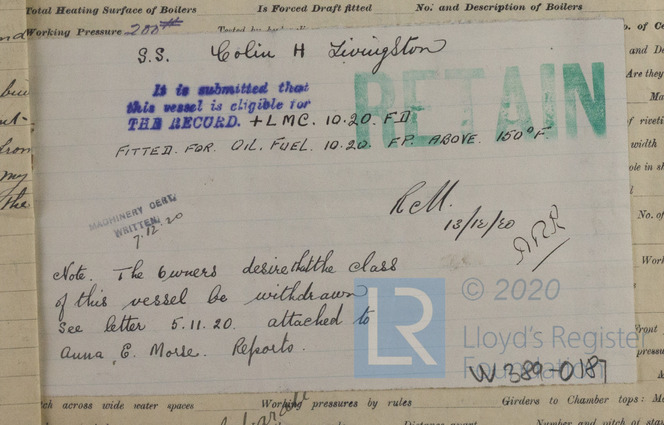 Total Heating Surface of Boilers Is Forced Draft fitted No. and Description of Boilers
Working Pressure 200#
S.S. Colin H Livingston
RETAIN
It is submitted that
this vessel is eligible for
THE RECORD. + L M C. 10.20 F D
FITTED. FOR. OIL. FUEL. 10.20 F.P. ABOVE. 150°F
MACHINERY CERT.
WRITTEN.
7.12.20
13/12/20
Note. The Owners desire that the class
of this vessel be withdrawn
See letter 5.11.20. attached to
Anna. E. Morse. Reports.
LR © 2020
Lloyd's Register
Foundation
W389-0187
across wide water spaces Working pressures by rules Girders to Chamber tops: